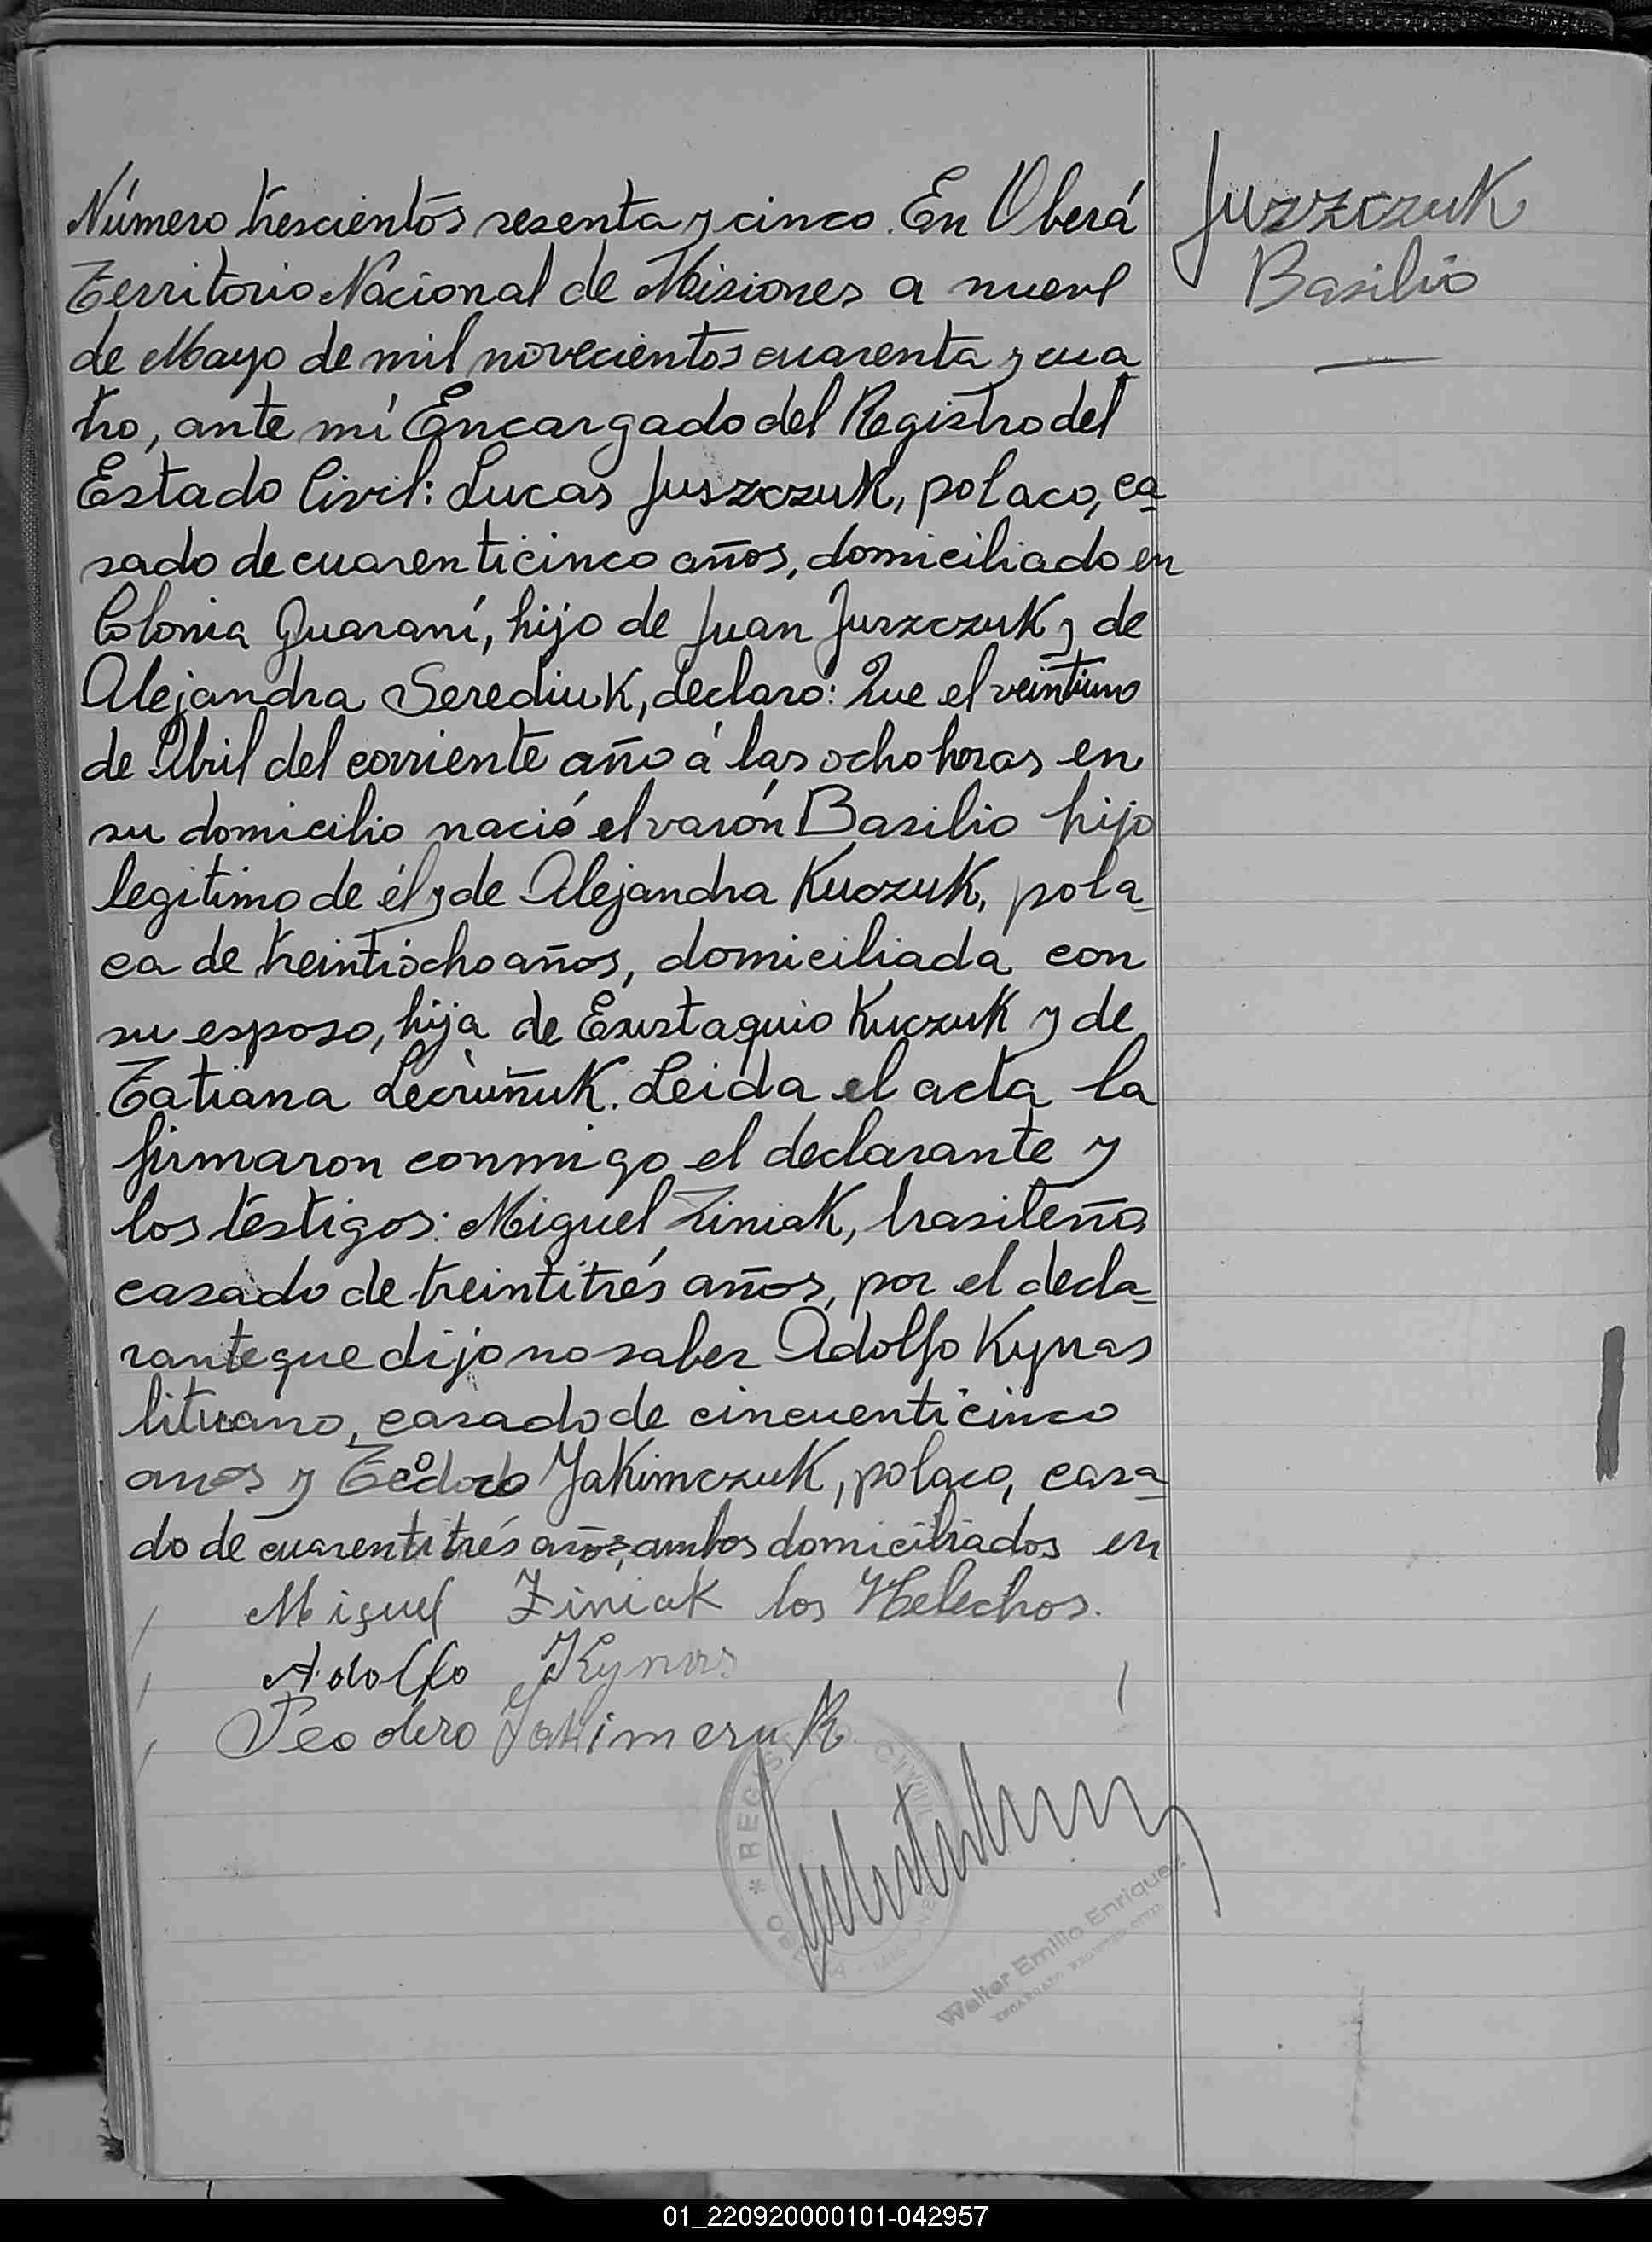 Número trescientos sesenta y cinco. En Oberá
Territorio Nacional de Misiones a nueve
de Mayo de mil novecientos cuarenta y cua
tro, ante mí Encargado del Registro del
Estado Civil: Lucas Juszczuk, polaco, ca
sado de cuarenticinco años, domiciliado en
Colonia Guaraní, hijo de Juan Juszczuk y de
Alejandra Serediuk, declaro: Que el veintiuno
de Abril del corriente año á las ocho horas en
su domicilio nació el varón Basilio hijo
legitimo de él y de Alejandra Kuczuk, pola
ca de treintiocho años, domiciliada con
su esposo, hija de Eustaquio Kuczuk y de
Tatiana Leida el acta la
firmaron conmigo el declarante y
los testigos: Miguel Ziniak, brasileño
casado de treintitrés años, por el decla
rante que dijo no saber Adolfo Kynas
lituano, casado de cincuenticinco
anos y Teodoro Jakimczuk, polaco, casa
do de cuarentitrés años, ambos domiciliados en
Miguel Ziniak los Helechos.
Adolfo Kynas
Teodoro Jakimczuk
Juszczuk
Basilio
* REGISTRO CIVIL
OBERA - MISIONES
Walter Emilio Enriquez
01_220920000101-042957